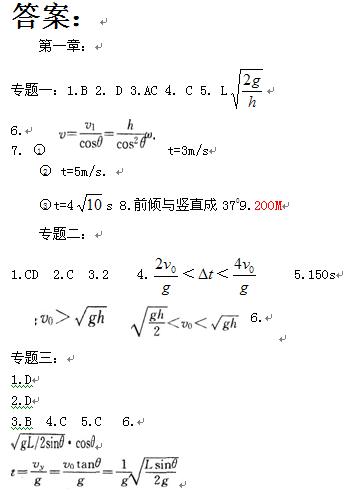 答案：
第一章：
专题一：1.B 2. D 3.AC 4. C 5. L√(2g/h)
6. v=v₁/cosθ=h/cos²θ ω.
7. ① t=3m/s
② t=5m/s.
③t=4√10 s 8.前倾与竖直成37⁰9.200M
专题二：
1.CD 2.C 3.2 4. 2v₀/g＜Δt＜4v₀/g 5.150s
;v₀＞√gh √(gh/2)＜v₀＜√gh 6.
专题三：
1.D
2.D
3.B 4.C 5.C 6.
√(gL/2sinθ)·cosθ
t=v_y/g=v₀tanθ/g=1/g√(Lsinθ/2g)